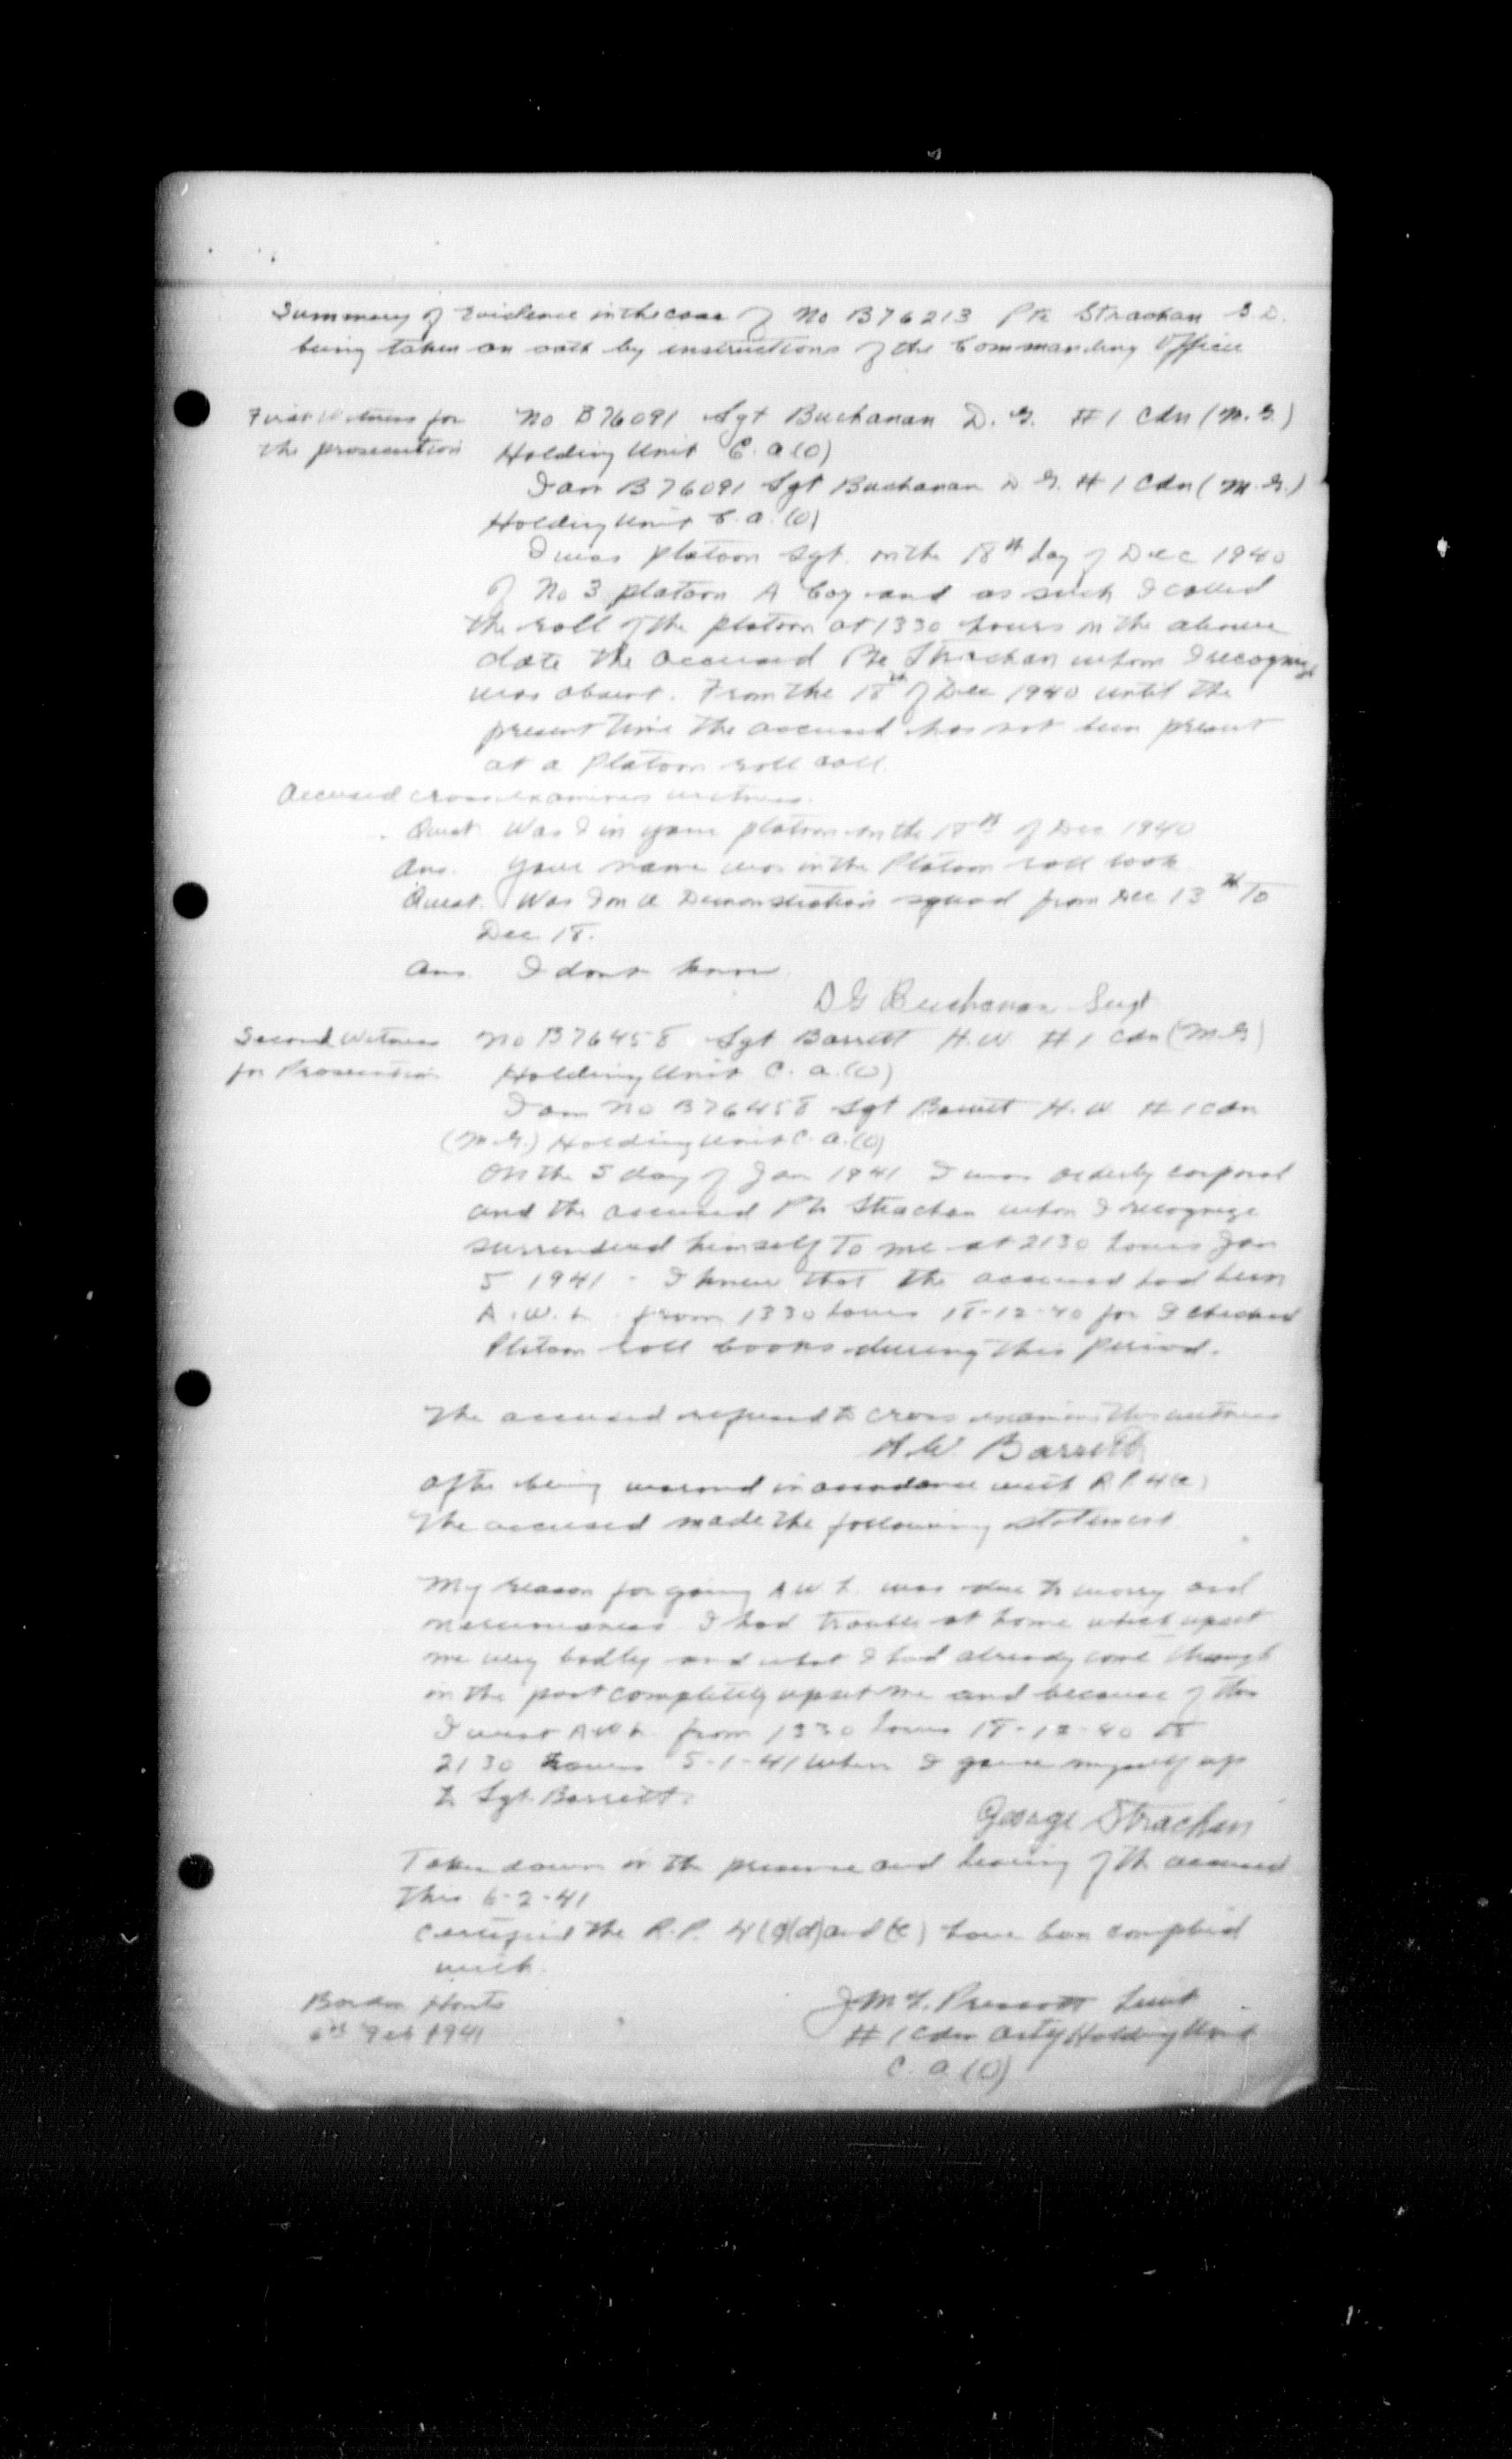 Summary of Evidence in the case of No B76213 Pte Strachan G.D.
being taken on oath by instructions of the Commanding Officer
First Witness for No B76091 Sgt Buchanan D. G. #1 Cdn (M.G.)
the prosecution Holding Unit C. A (O)
I am B76091 Sgt Buchanan D G. #1 Cdn (M.G.)
Holding Unit C. A. (O)
I was platoon Sgt. on the 18th day of Dec 1940
of No 3 platoon A Coy and as such I called
the roll of the platoon at 1330 hours on the above
date the accused Pte Strachan whom I recognize
was absent. From the 18th of Dec 1940 until the
present time the accused has not been present
at a Platoon roll call.
Accused cross examines witness.
Quest. Was I in your platoon on the 18th of Dec 1940
Ans. Your name was in the Platoon roll book
Quest. Was I on a Demonstration squad from Dec 13th To
Dec 18.
Ans. I dont know.
D G Buchanan Sergt
Second Witness No B76458 Sgt Barrett H. W #1 Cdn (M.G)
for Prosecution Holding Unit C. A. (O)
I am No B76458 Sgt Barrett H. W #1 Cdn
(M.G.) Holding Unit C. A. (O)
On the 5 day of Jan 1941 I was orderly corporal
and the accused Pte Strachan whom I recognize
surrendered himself To me at 2130 hours Jan
5 1941 - I knew that the accused had been
A.W.L. from 1330 hours 18-12-40 for I checked
Platoon roll books during this period.
The accused refused to cross examine this witness
H. W. Barrett
After being warned in accordance with R.P. 4(e)
The accused made the following statement
My reason for going A.W.L. was due to worry and
I had trouble at home which upset
me very badly and what I had already come through
in the past completely upset me and because of this
I went A.W.L. from 1330 hours 18-12-40 to
2130 hours 5-1-41 when I gave myself up
to Sgt. Barrett.
George Strachan
Taken down in the presence and hearing of the accused
this 6-2-41
Certified the R.P. 4 (c)(d) and (e) have been complied
with.
Bordon Hants J.M.L. Prescott Lieut
6th Feb 1941 #1 Cdn Arty Holding Unit
C. A (O)